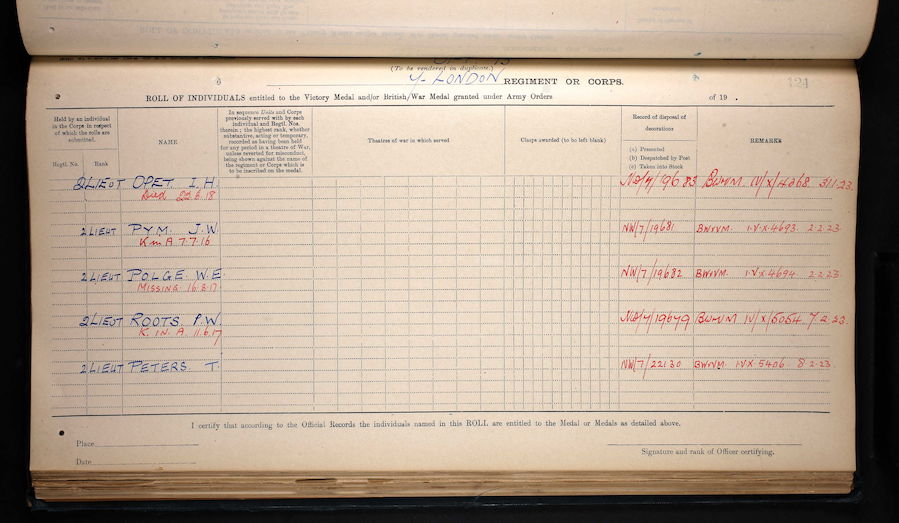 (To be rendered in duplicate.)
7- LONDON REGIMENT OR CORPS.
121
ROLL OF INDIVIDUALS entitled to the Victory Medal and/or British War Medal granted under Army Orders of 19 .
Held by an individual
in the Corps in respect
of which the rolls are
submitted.
Regtl. No. Rank
NAME
In sequence Units and Corps
previously served with by each
individual and Regtl. Nos.
therein; the highest rank, whether
substantive, acting or temporary,
recorded as having been held
for any period in a theatre of War,
unless reverted for misconduct,
being shown against the name of
the regiment or Corps which is
to be inscribed on the medal.
Theatres of war in which served
Clasps awarded (to be left blank)
Record of disposal of
decorations
(a) Presented
(b) Despatched by Post
(c) Taken into Stock
REMARKS
2 LIEUT OPET. I. H. NW/7/19683 BW+VM. IV/X/4268 31.1.23.
Died 22.6.18
2 LIEUT PYM. J. W. NW/7/19681 BW+VM. I.V.X.4693. 2.2.23.
K in A 7.7.16
2 LIEUT POLGE. W. E. NW/7/19682 BW+VM. I.V.X.4694. 2.2.23
MISSING 16.8.17
2 LIEUT ROOTS P. W. NW/7/19679 BW+VM IV/X/5054. 7.2.23.
K. IN. A. 11.6.17
2 LIEUT PETERS. T. NW/7/22130 BW+VM. I.V.X 5406. 8.2.23.
I certify that according to the Official Records the individuals named in this ROLL are entitled to the Medal or Medals as detailed above.
Place
Date
Signature and rank of Officer certifying.